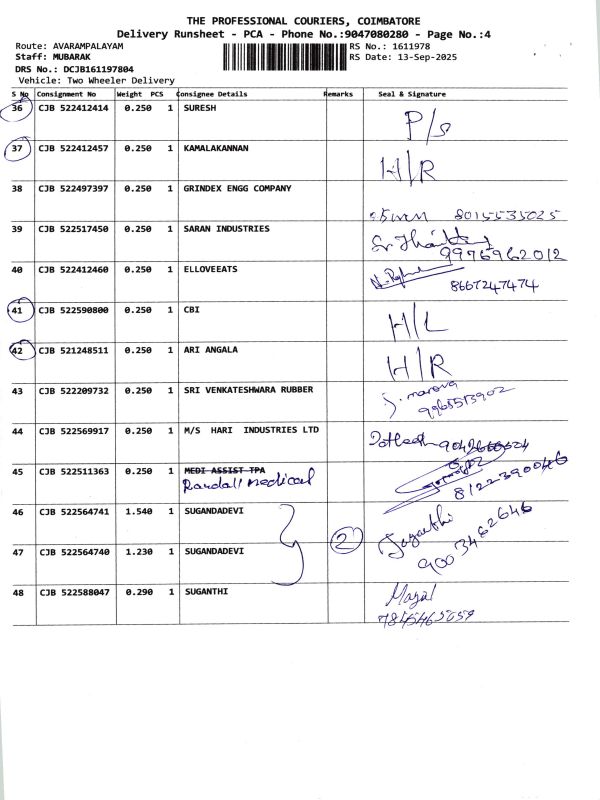 THE PROFESSIONAL COURIERS, COIMBATORE
Delivery Runsheet - PCA - Phone No.:9047080280 - Page No.:4
Route: AVARAMPALAYAM RS No.: 1611978
Staff: MUBARAK RS Date: 13-Sep-2025
DRS No.: DCJB161197804
Vehicle: Two Wheeler Delivery
S No Consignment No Weight PCS Consignee Details Remarks Seal & Signature
36 CJB 522412414 0.250 1 SURESH P/s
37 CJB 522412457 0.250 1 KAMALAKANNAN H/R
38 CJB 522497397 0.250 1 GRINDEX ENGG COMPANY 8015535025
39 CJB 522517450 0.250 1 SARAN INDUSTRIES 9976962012
40 CJB 522412460 0.250 1 ELLOVEEATS 8667247474
41 CJB 522590800 0.250 1 CBI H/L
42 CJB 521248511 0.250 1 ARI ANGALA H/R
43 CJB 522209732 0.250 1 SRI VENKATESHWARA RUBBER
44 CJB 522569917 0.250 1 M/S HARI INDUSTRIES LTD
45 CJB 522511363 0.250 1 MEDI ASSIST TPA
medical 8122390046
46 CJB 522564741 1.540 1 SUGANDADEVI
2 9003462646
47 CJB 522564740 1.230 1 SUGANDADEVI
48 CJB 522588047 0.290 1 SUGANTHI
7845465059